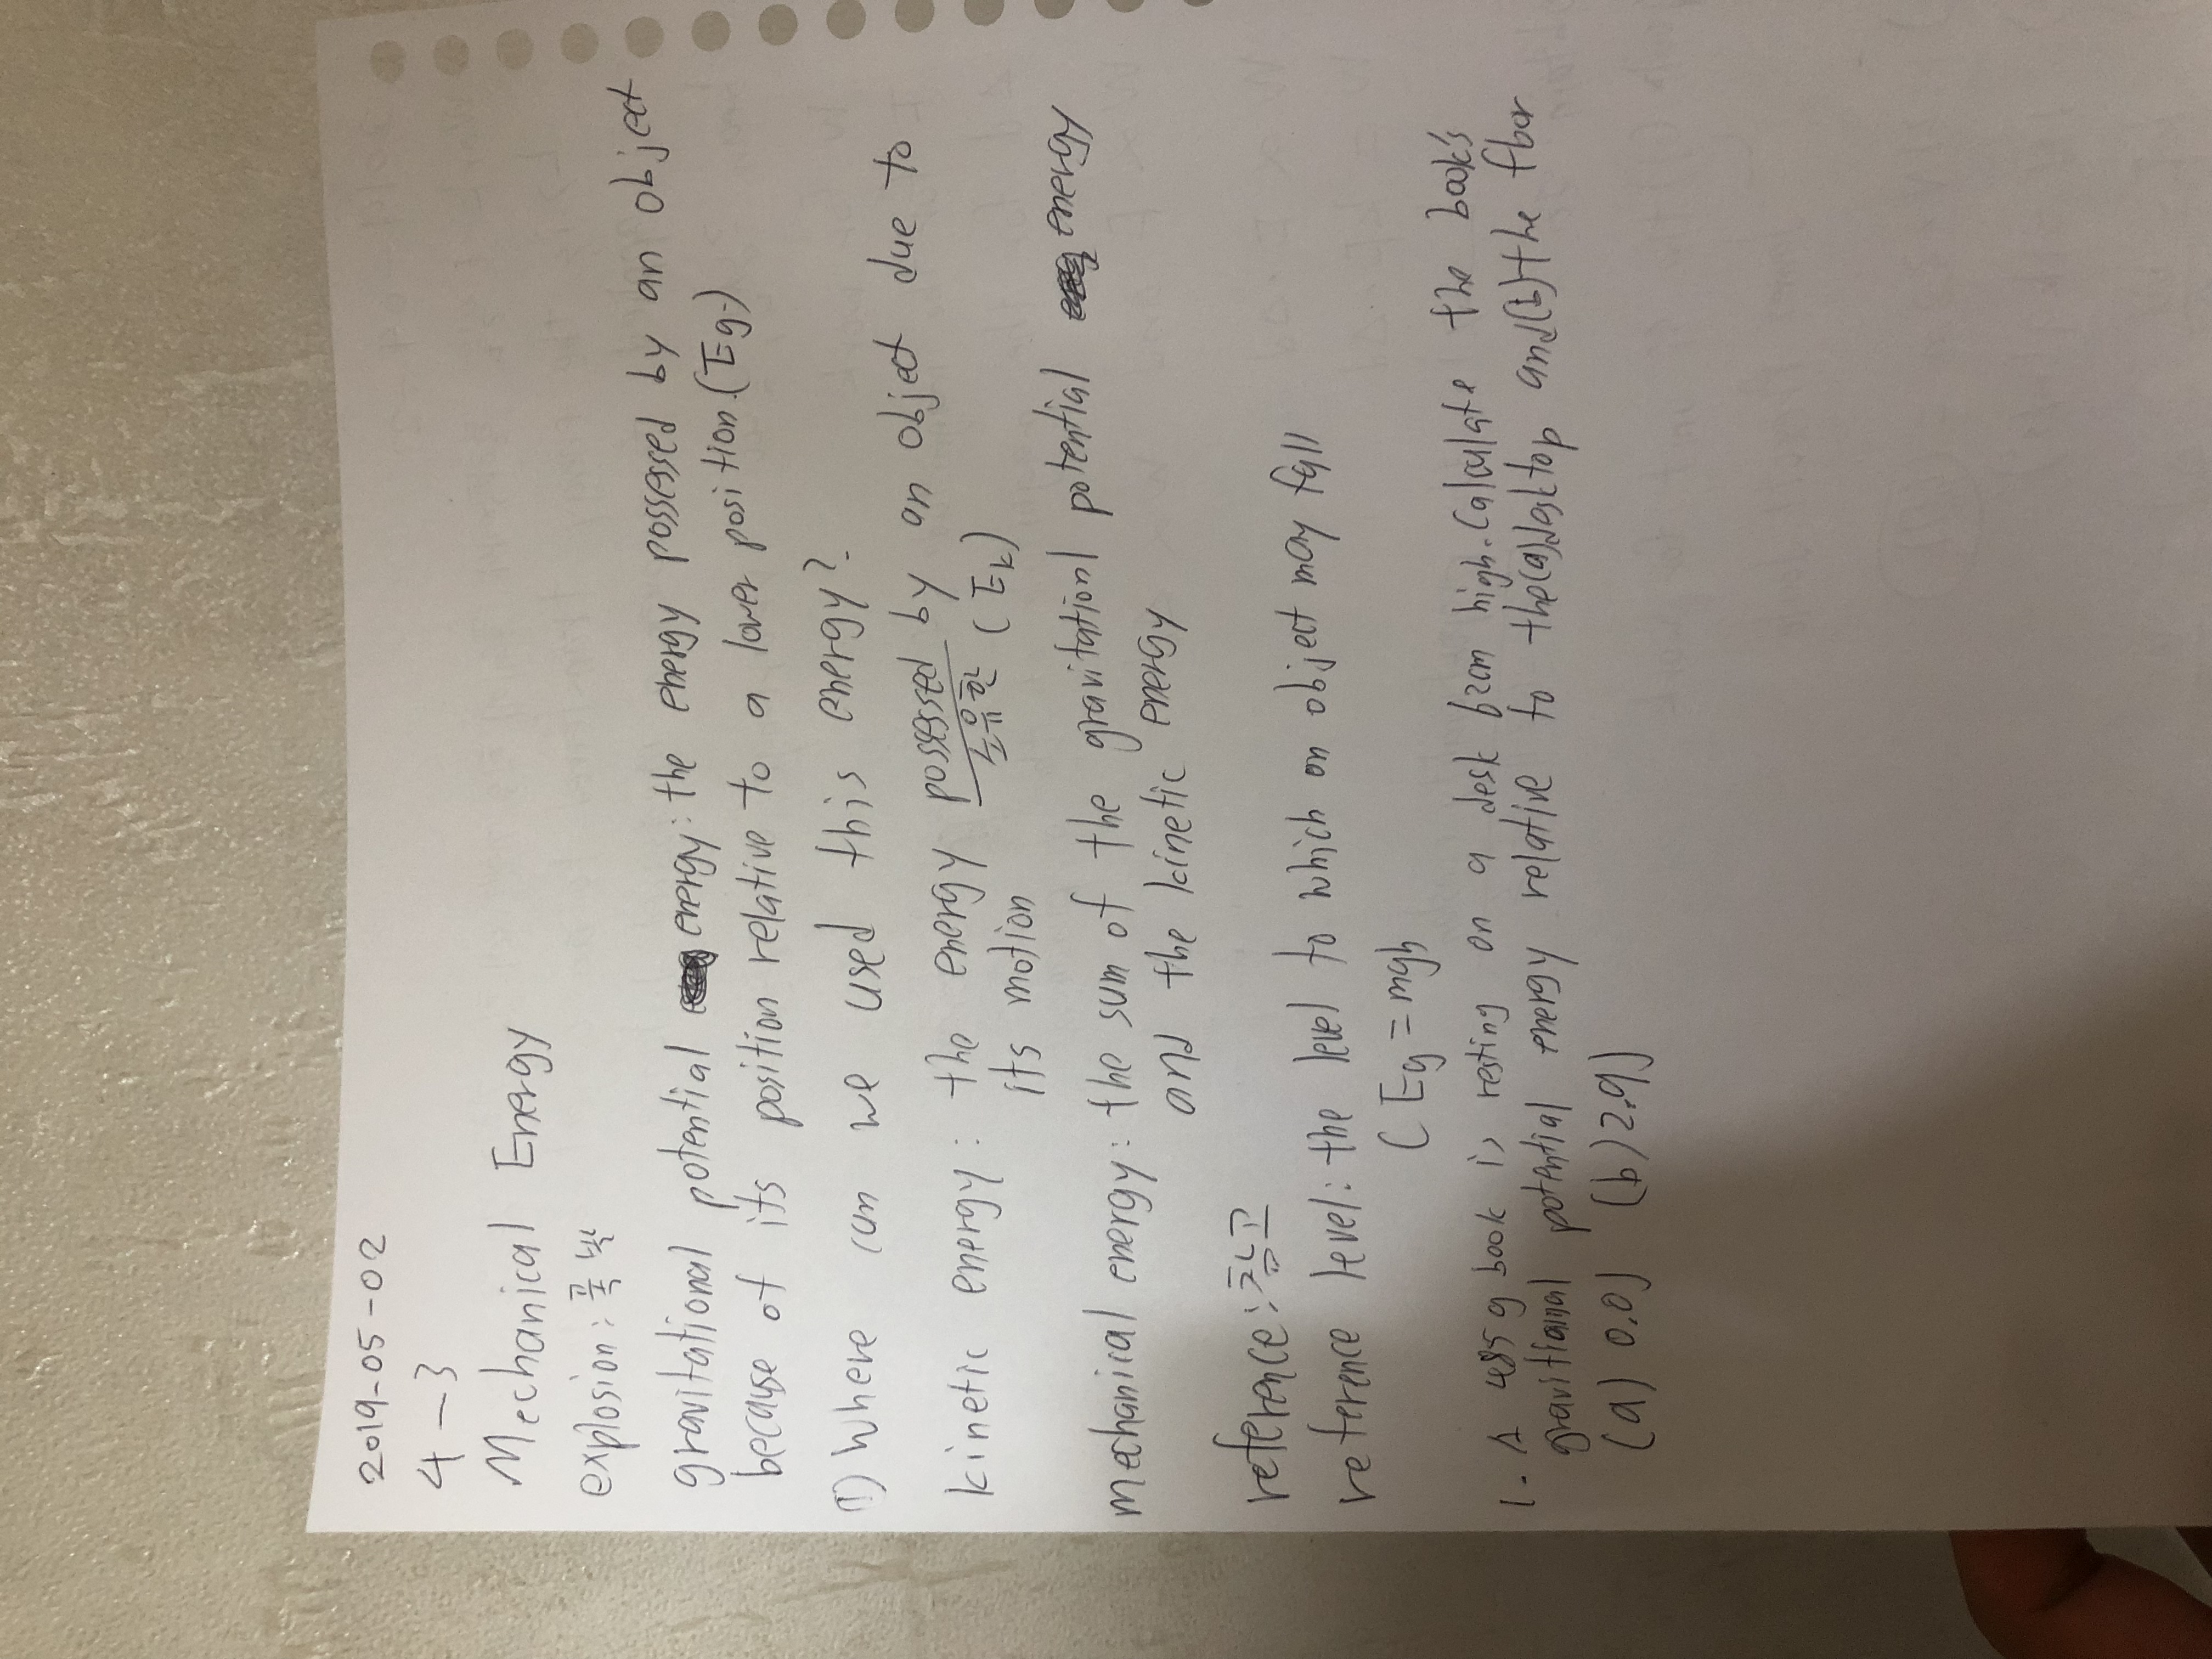 2019-05-02
4-3
Mechanical Energy
explosion: 폭발
gravitational potential energy: the energy possessed by an object
because of its position relative to a lower position.(Eg)
① Where can we used this energy?
kinetic energy: the energy possessed by an object due to
소유한
its motion (Ek)
mechanical energy: the sum of the gravitational potential energy
and the kinetic energy
reference: 참고
reference level: the level to which an object may fall
(Eg=mgh
1. A 485g book is resting on a desk 62cm high. Calculate the book's
gravitational potential energy relative to the(a)desktop and(b)the floor
(a) 0.0J (b)2.9J